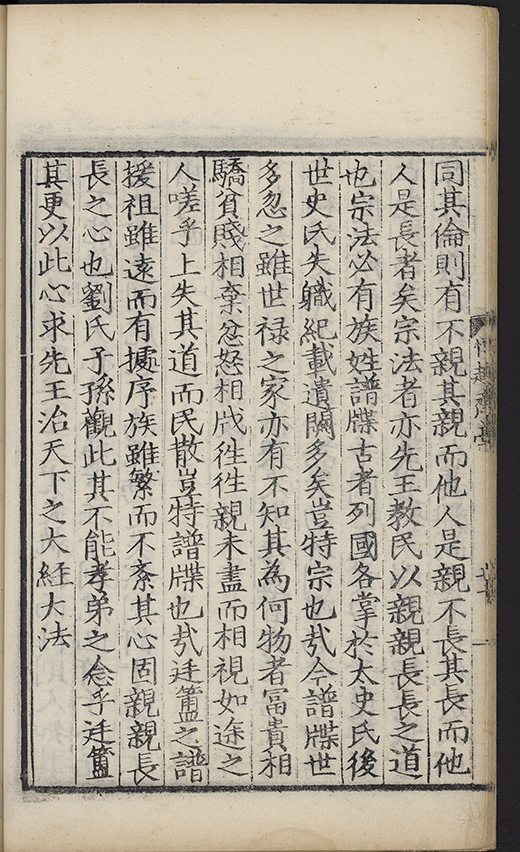 同其倫則有不親其親而他人是親不長其長而他
人是長者矣宗法者亦先王教民以親親長長之道
也宗法必有族姓譜牒古者列國各掌於太史氏後
世史氏失職紀載遺闕多矣豈特宗也㢤今譜牒世
多忽之雖世禄之家亦有不知其為何物者冨貴相
驕貧賤相棄忿怒相戕徃徃親未盡而相視如途之
人嗟乎上失其道而民散豈特譜牒也㢤廷簠之譜
援祖雖遠而有㩀序族雖繁而不紊其心固親親長
長之心也劉氏子孫觀此其不能孝弟之念乎廷簠
其更以此心求先王治天下之大經大法